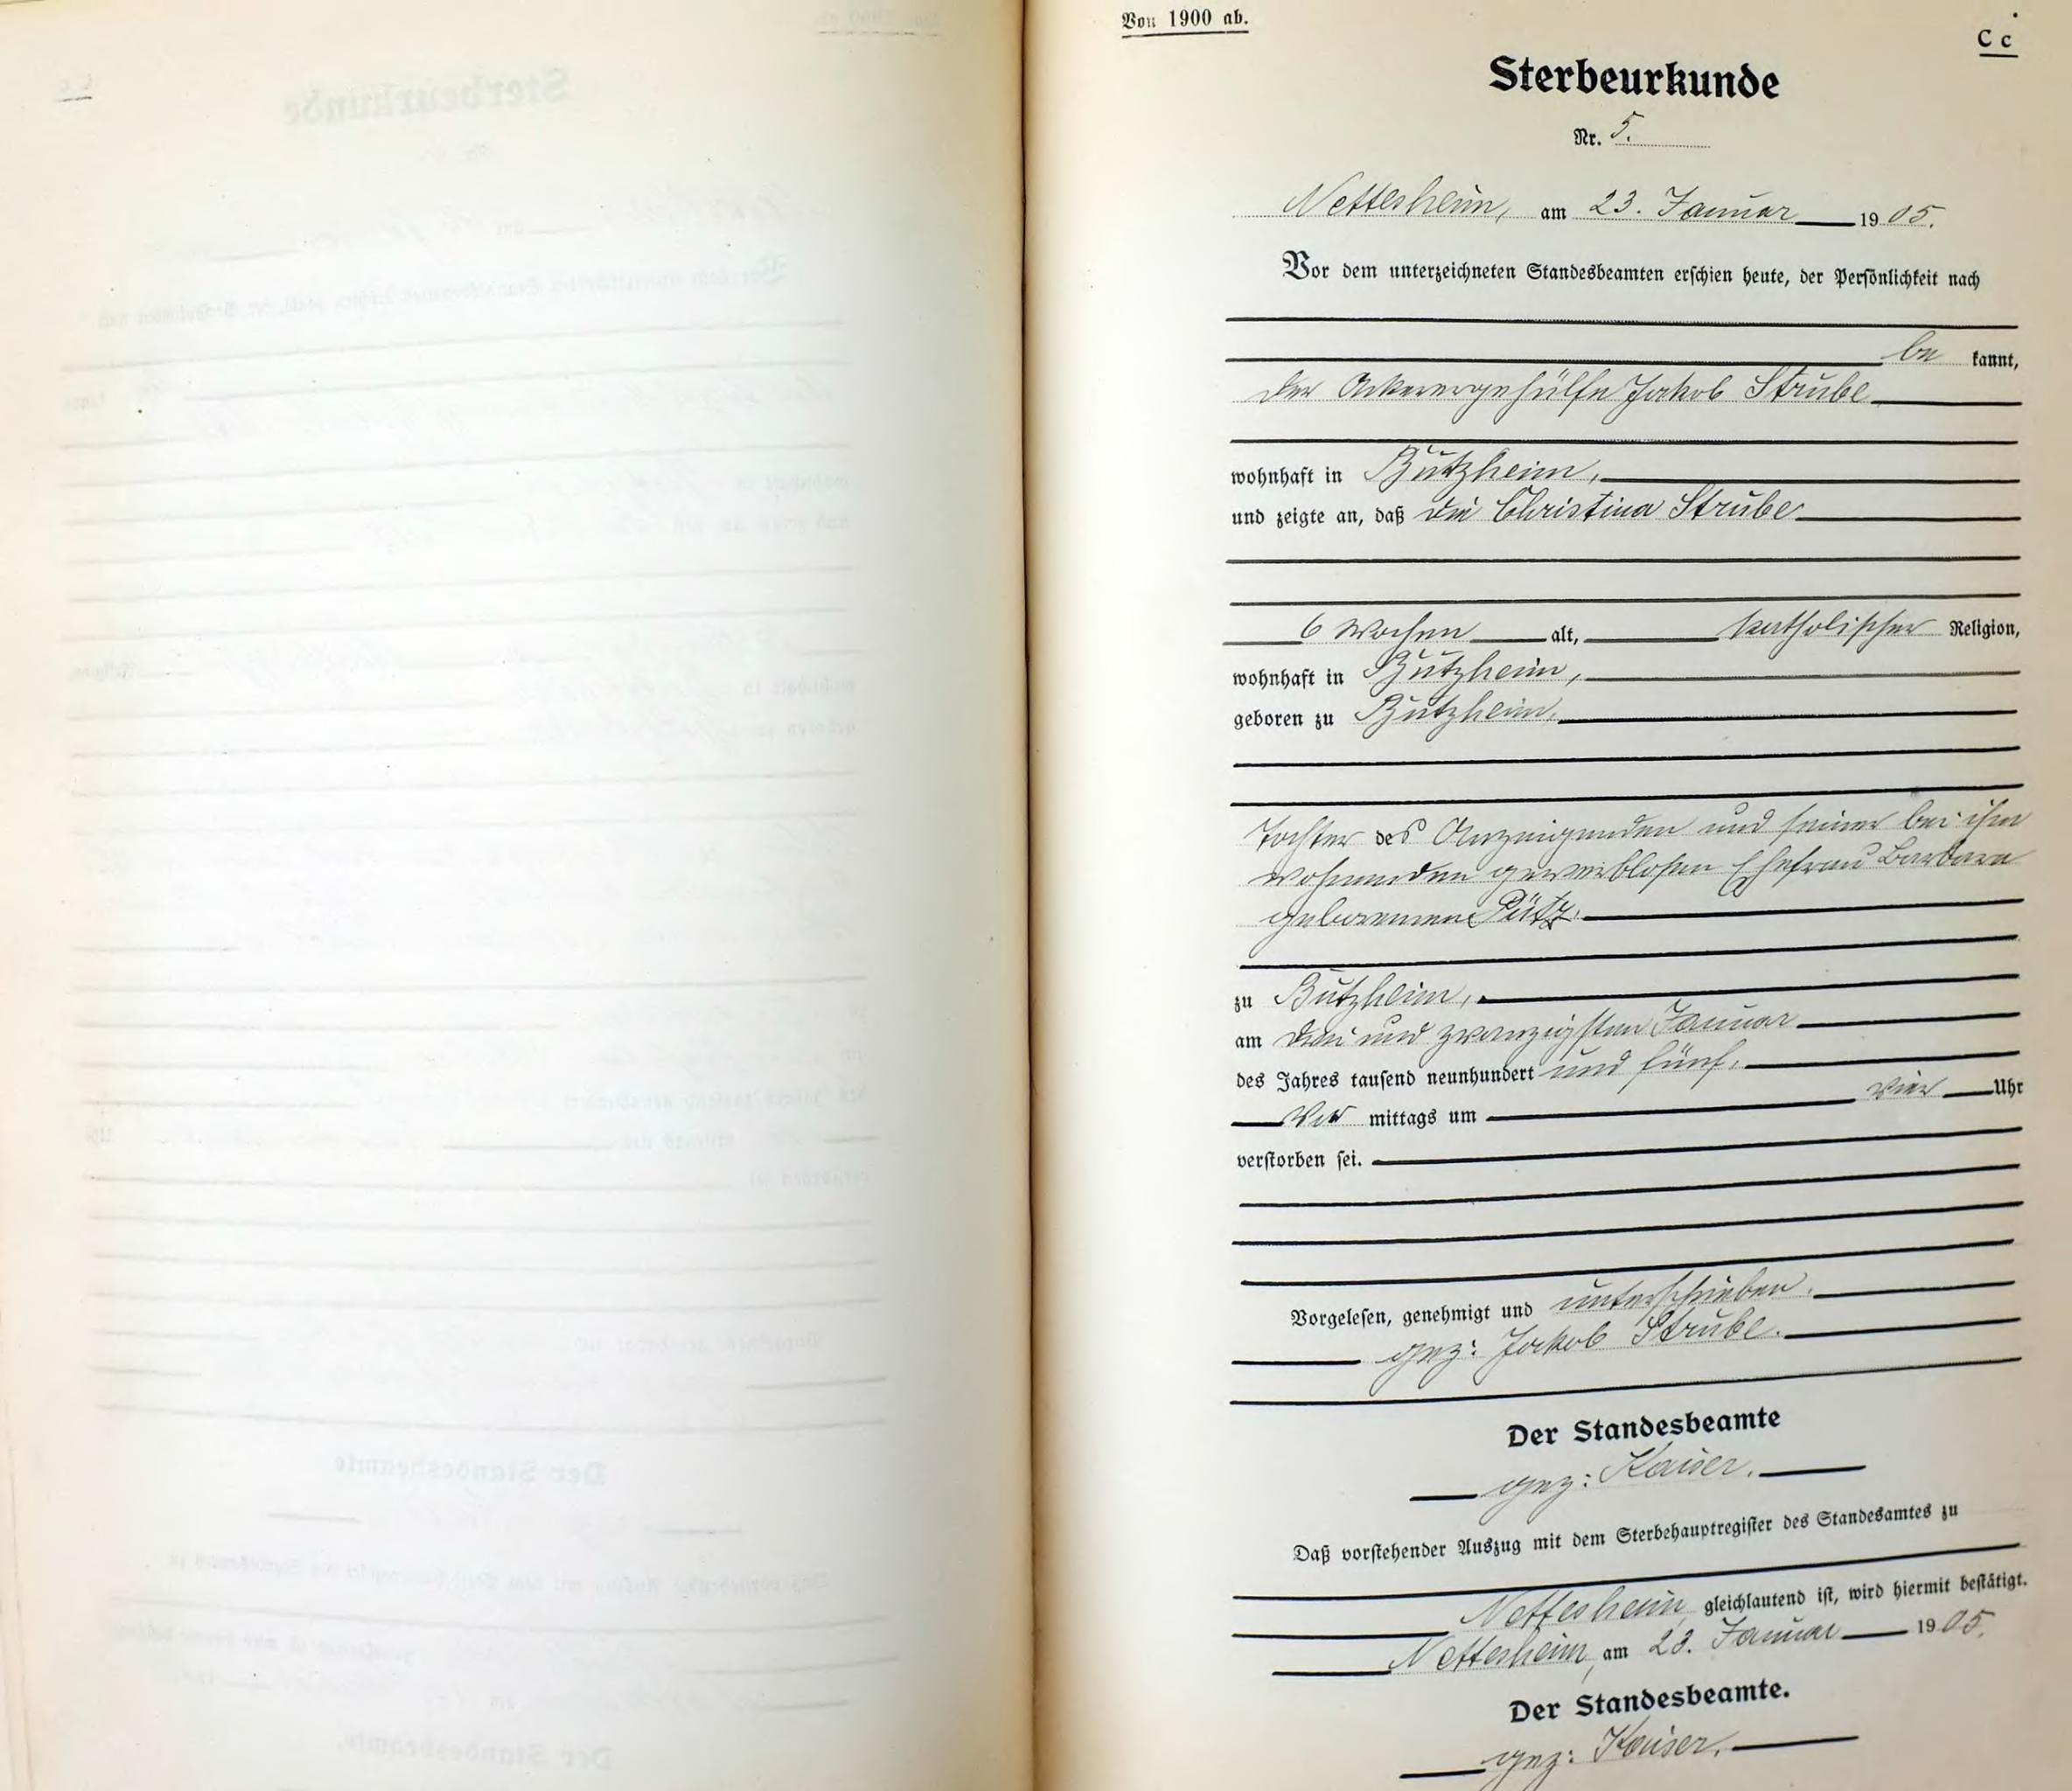 Von 1900 ab.
C c
Sterbeurkunde
Nr. 5.
Nettesheim, am 23. Januar 1905.
Vor dem unterzeichneten Standesbeamten erschien heute, der Persönlichkeit nach
be kannt,
der Ackerergehülfe Jakob Strube
wohnhaft in Bützheim,
und zeigte an, daß die Christina Strube
6 Wochen alt, katholischer Religion,
wohnhaft in Bützheim,
geboren zu Bützheim,
Tochter des Anzeigenden und seiner bei ihm
wohnenden gewerblosen Ehefrau Barbara
geborenen Pütz.
zu Bützheim,
am drei und zwanzigsten Januar
des Jahres tausend neunhundert und fünf,
Vor mittags um vier Uhr
verstorben sei.
Vorgelesen, genehmigt und unterschrieben.
gez: Jakob Strube.
Der Standesbeamte
gez: Kaiser.
Daß vorstehender Auszug mit dem Sterbehauptregister des Standesamtes zu
Nettesheim gleichlautend ist, wird hiermit bestätigt.
Nettesheim, am 23. Januar 1905.
Der Standesbeamte.
gez: Kaiser.